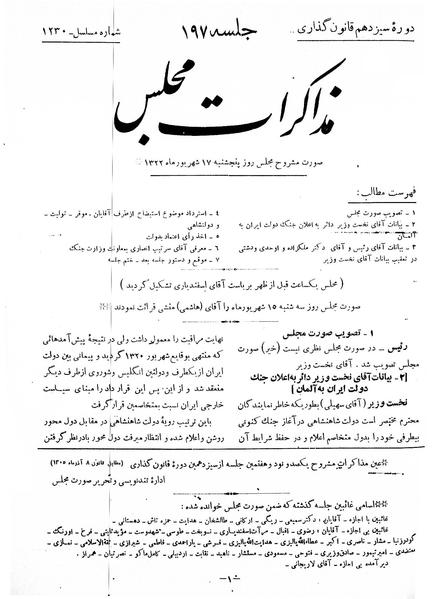 دورهٔ سیزدهم قانون گذاری
جلسه ۱۹۷
شماره مسلسل - ۱۲۳۰
مذاکرات مجلس
صورت مشروح مجلس روز پنجشنبه ۱۷ شهریور ماه ۱۳۲۲
فهرست مطالب:
۱ - تصویب صورت مجلس
۲ - بیانات آقای نخست وزیر دائر به اعلان جنگ دولت ایران به
آلمان
۳ - بیانات آقای رئیس و آقای دکتر ملک‌زاده و اوحدی و دشتی
در تعقیب بیانات آقای نخست وزیر
۴ - استرداد موضوع استیضاح از طرف آقایان. موقر - تولیت -
و دولتشاهی
۵ - اخذ رأی اعتماد بدولت
۶ - معرفی آقای سرتیپ انصاری بمعاونت وزارت جنگ
۷ - موقع و دستور جلسه بعد - ختم جلسه
( مجلس یکساعت قبل از ظهر بریاست آقای اسفندیاری تشکیل گردید )
صورت مجلس روز سه شنبه ۱۵ شهریور ماه را آقای (هاشمی) منشی قرائت نمودند
۱ - تصویب صورت مجلس
رئیس - در صورت مجلس نظری نیست (خیر) صورت
مجلس تصویب شد . آقای نخست وزیر
۲- بیانات آقای نخست وزیر دائر به اعلان جنگ
دولت ایران به آلمان
نخست وزیر (آقای سهیلی) بطوریکه خاطر نمایندگان
محترم مختصر است دولت شاهنشاهی در آغاز جنگ کنونی
بیطرفی خود را بدول متخاصم اعلام و در حفظ شرایط آن
نهایت مراقبت را معمول داشت ولی در نتیجهٔ پیش آمدهائی
که منتهی بوقایع شهریور ۱۳۲۰ گردید و پیمانی بین دولت
ایران از یکطرف و دولتین انگلیس و شوروی از طرف دیگر
منعقد شد و از این پس این قرارداد را مبنای سیاست
خارجی ایران نسبت بمتخاصمین قرار گرفت
باین ترتیب رویهٔ دولت شاهنشاهی در مقابل دول محور
روشن و اعلام شده و انتظار میرفت دول محور با در نظر گرفتن
عین مذاکرات مشروح یکصد و نود و هفتمین جلسه از سیزدهمین دورهٔ قانون گذاری (مطابق قانون ۸ آذر ماه ۱۳۰۵)
اداره تند نویسی و تحریر صورت مجلس
اسامی غائبین جلسه گذشته که ضمن صورت مجلس خوانده شده :
غائبین با اجازه - آقایان : دکتر سمیعی -
غائبین بی اجازه - آقایان :
دیر آمده بی اجازه - آقای لاریجانی -
- ۱ -